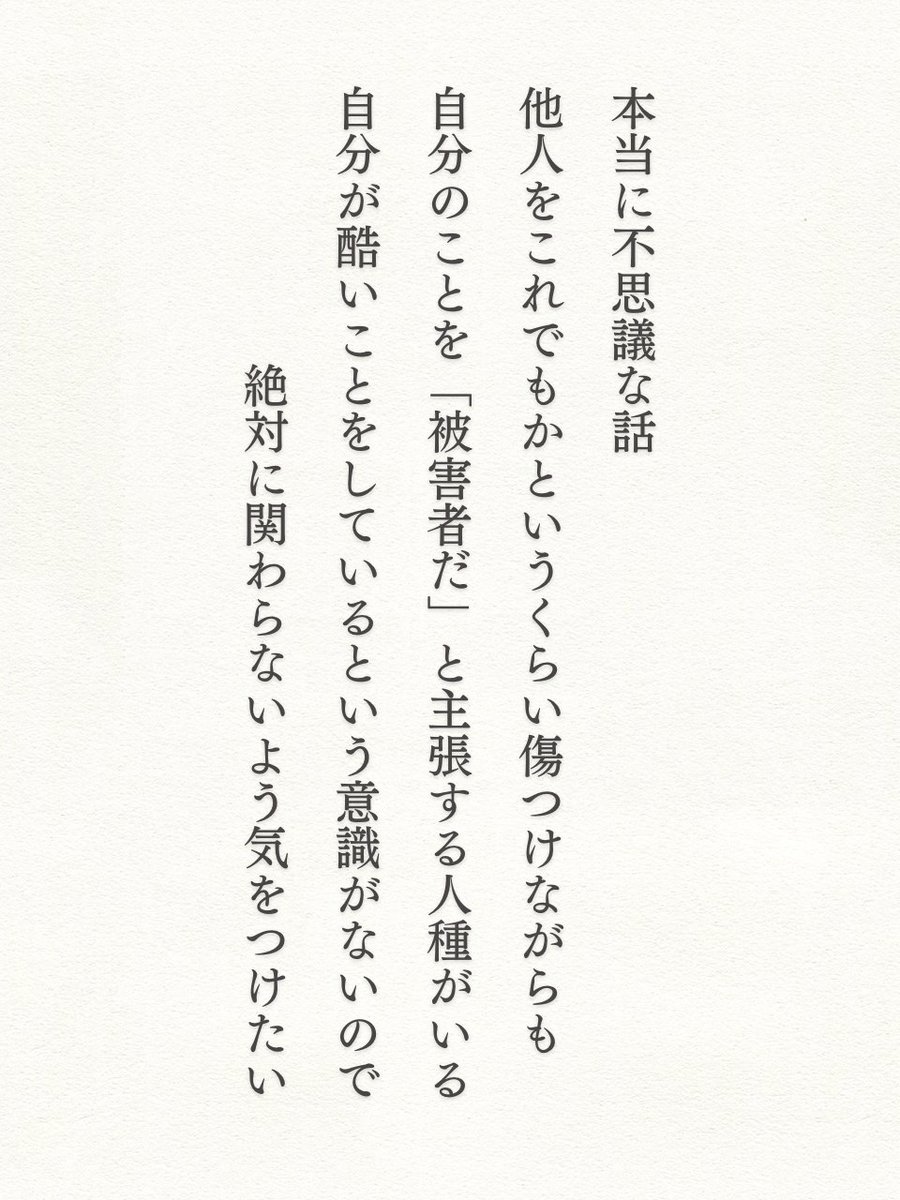 本当に不思議な話
他人をこれでもかというくらい傷つけながらも
自分のことを「被害者だ」と主張する人種がいる
自分が酷いことをしているという意識がないので
絶対に関わらないよう気をつけたい